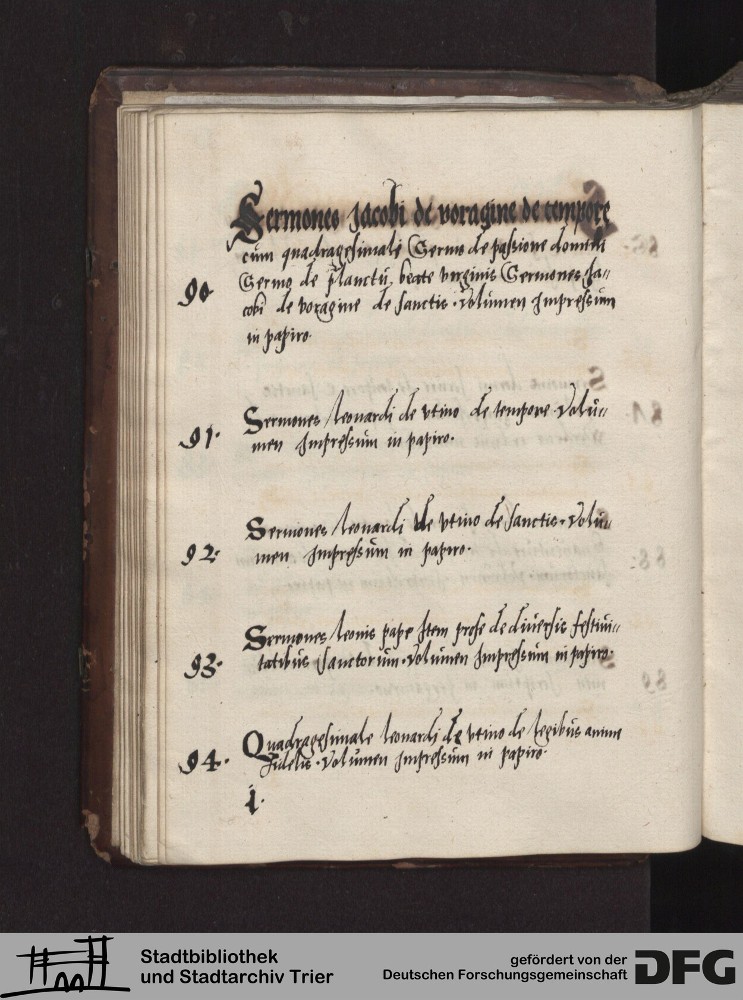 Sermones Jacobi de voragine de tempore
cum quadragesimali Sermo de passione domini
90
Sermo de planctu beate virginis Sermones Ja=
cobi de voragine de sanctis. Volumen Impressum
in papiro.
91. Sermones leonardi de vtino de tempore. Volu=
men Impressum in papiro.
92. Sermones leonardi de vtino de sanctis. Volu=
men Impressum in papiro.
Sermones leonis pape Item prose de diuersis festiui=
93. tatibus sanctorum. Volumen Impressum in papiro.
Quadragesimale leonardi de vtino de legibus anime
94. fidelis. Volumen Impressum in papiro.
i.
Stadtbibliothek
und Stadtarchiv Trier
gefördert von der
Deutschen Forschungsgemeinschaft
DFG